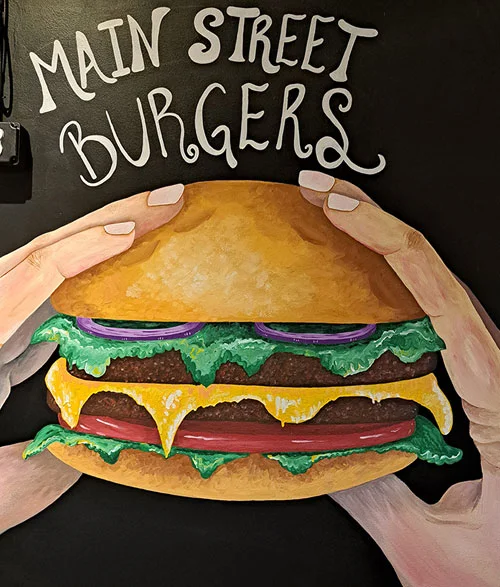 MAIN STREET
BURGERS